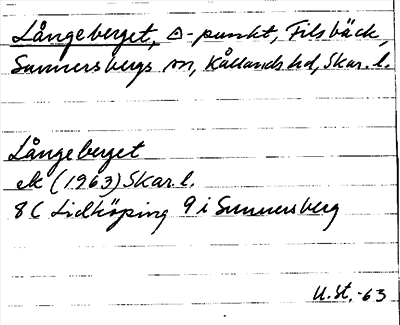 Långeberget, △-punkt, Filsbäck,
Sunnersbergs sn, Kållands hd, Skar. l.
Långeberget
ek (1963) Skar. l.
8C Lidköping 9 i Sunnersberg
U. St. -63